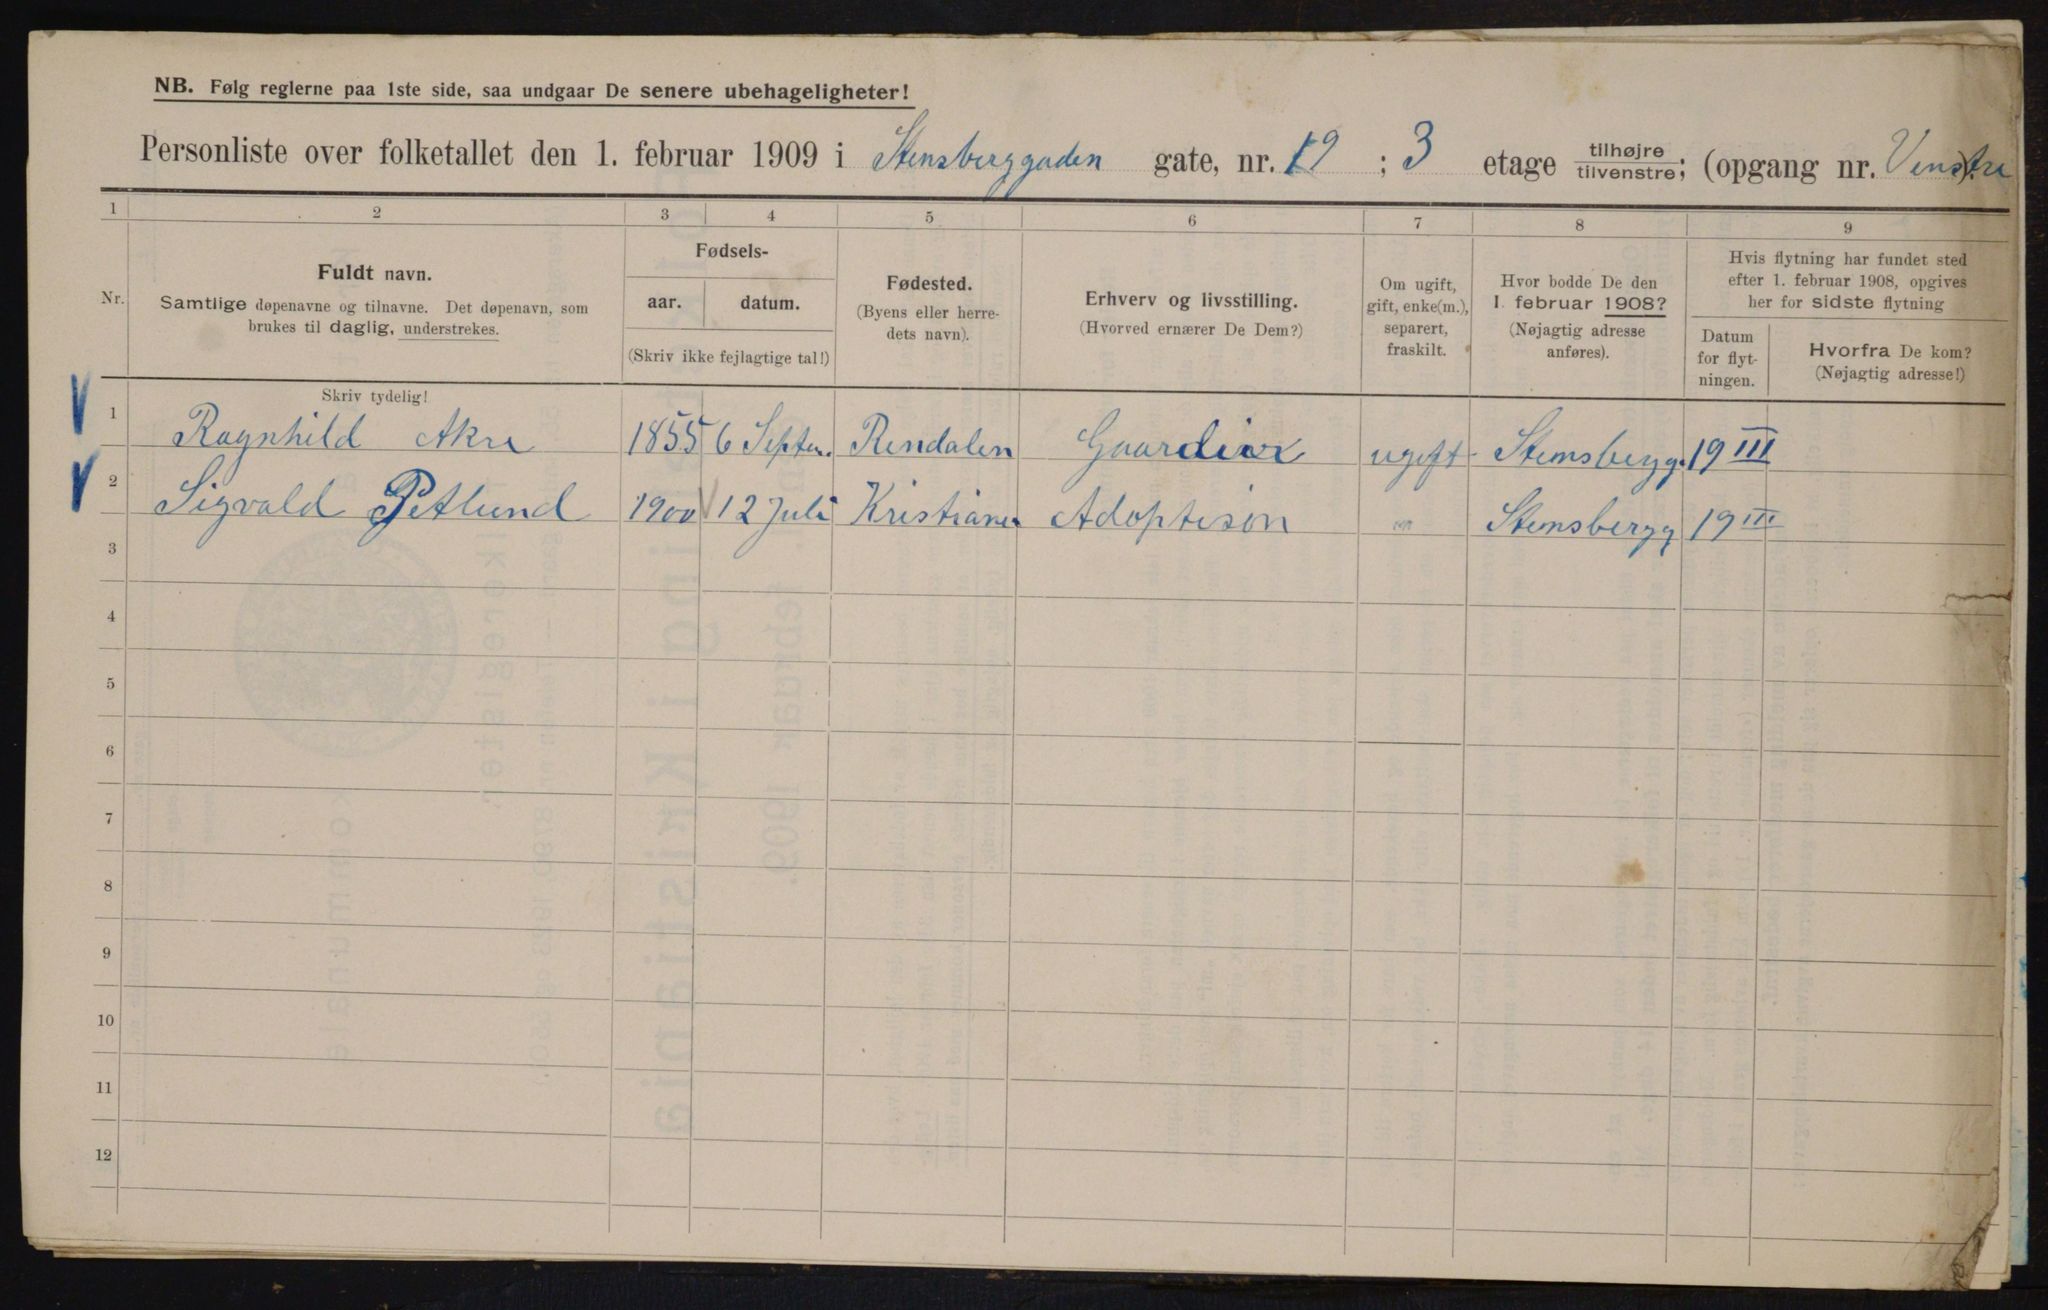 NB. Følg reglerne paa 1ste side, saa undgaar De senere ubehageligheter!
Personliste over folketallet den 1. februar 1909 i Stensberggaden gate, nr. 19 ; 3 etage tilhøjre/tilvenstre; (opgang nr. Venstre ).
1 2 3 4 5 6 7 8 9
Nr.
Fuldt navn.
Samtlige døpenavne og tilnavne. Det døpenavn, som
brukes til daglig, understrekes.
Fødsels-
aar. datum.
(Skriv ikke fejlagtige tal!)
Fødested.
(Byens eller herre-
dets navn).
Erhverv og livsstilling.
(Hvorved ernærer De Dem?)
Om ugift,
gift, enke(m.),
separert,
fraskilt.
Hvor bodde De den
1. februar 1908?
(Nøjagtig adresse
anføres).
Hvis flytning har fundet sted
efter 1. februar 1908, opgives
her for sidste flytning
Datum
for flyt-
ningen.
Hvorfra De kom?
(Nøjagtig adresse!)
Skriv tydelig!
1 Ragnhild Akre 1855 6 Septem. Rendalen ugift Stensbergg. 19 III
2 Sigvald Petlund 1900 12 Juli Kristiania Adoptisøn Stensbergg 19 III
3
4
5
6
7
8
9
10
11
12